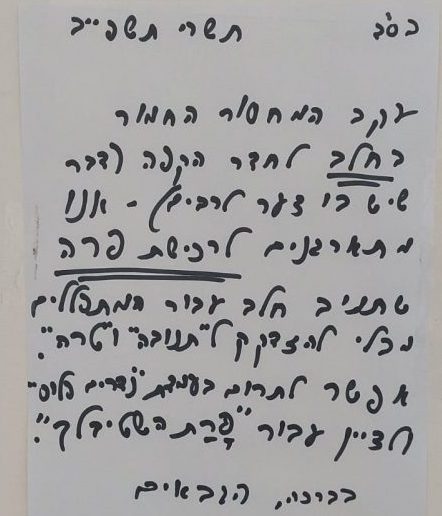 בס"ד תשרי תשפ"ב
עקב המחסור החמור
בחלב לחדר הקפה (דבר
שיש בו צער לרבים) - אנו
מתארגנים לרכישת פרה
שתניב חלב עבור המתפללים
מבלי להצדקק ל"תנובה" ו"טרה".
אפשר לתרום בעמדת "נדרים פלוס"
לציין עבור "פָרַת השטיבלך".
בברכה, הגבאים